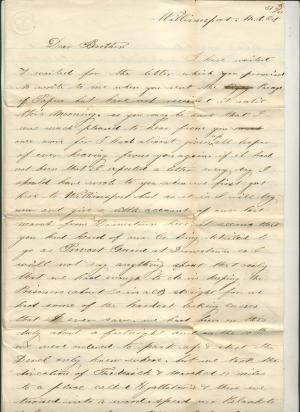 Williamsport, Md.
Dear Brother
I have waited
& waited for the letter which you promised
to write to me when you sent the
of Papers but have not received it until
this morning. as you may be sure that I
was much pleased to hear from you
once more for I had almost given all hope
of ever hearing from you again if it had
not been that I expected a letter every day I
should have wrote to you when we first got
here to Williamsport but as it is I will try
now and give a little account of our last
march from Darnestown but it seems that
you had heard of our Co being detailed to
go as Provost Guard at Darnestown so I
will not say anything about that only
that we had enough to do in keeping the
Prisoners about straight for we
had some of the hardest looking cases
that I ever saw we had been on this
duty about a fortnight and on the
we were ordered to pack up & start the
Devil only knew where, but we took the
direction of Frederick & marched
to a place called Hyattstown & there we
turned into a